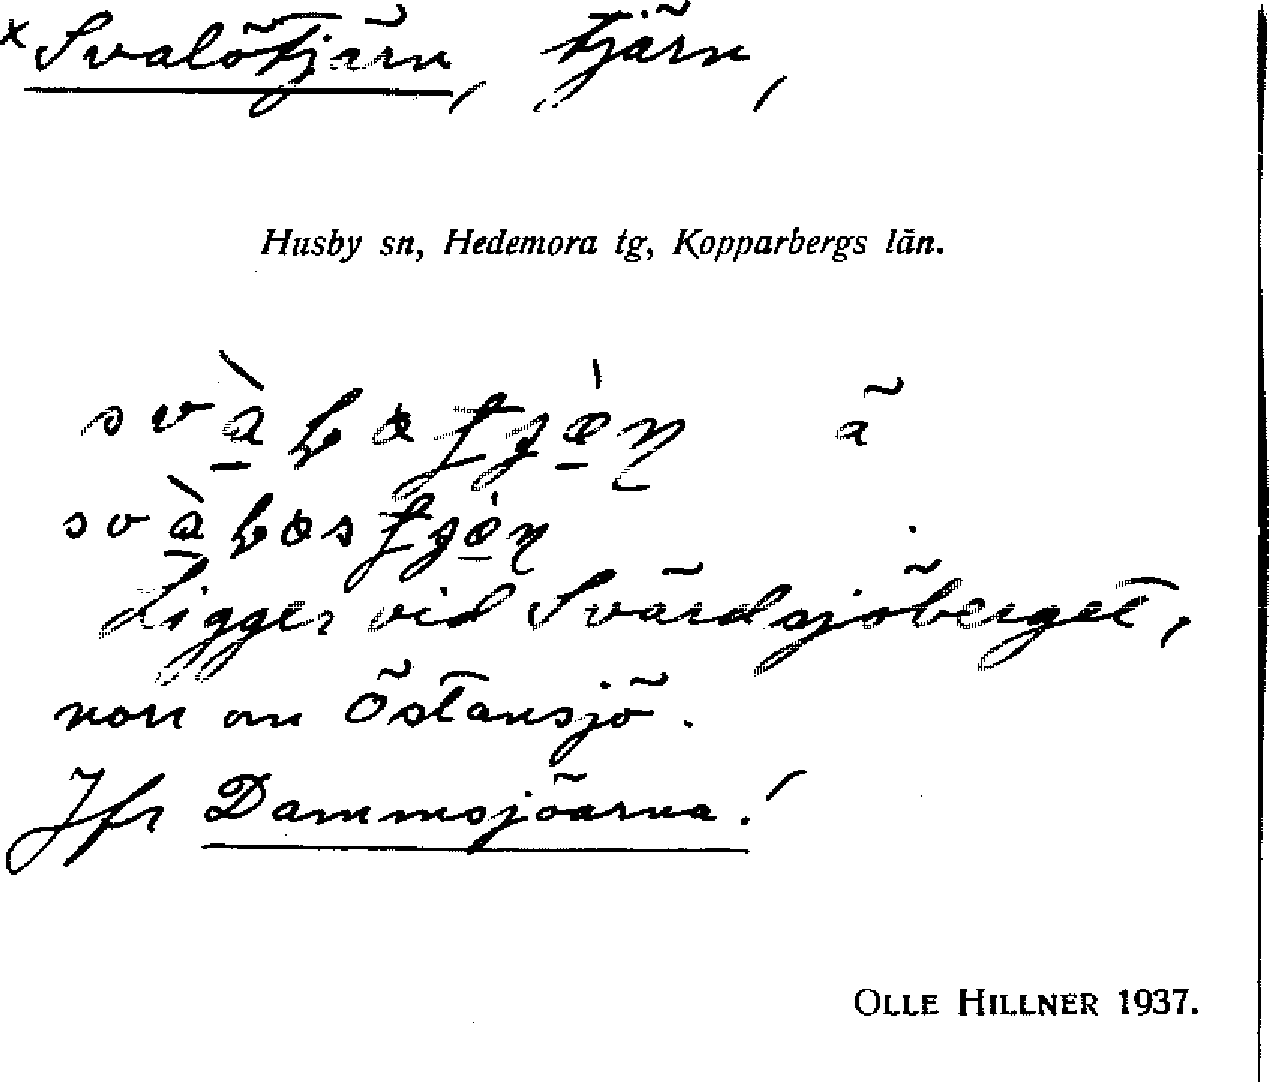 x Svalötjärn, tjärn,
Husby sn, Hedemora tg, Kopparbergs län.
ä
Ligger vid Svärdsjöberget,
norr om Östansjö.
Jfr Dammsjöarna!
OLLE HILLNER 1937.